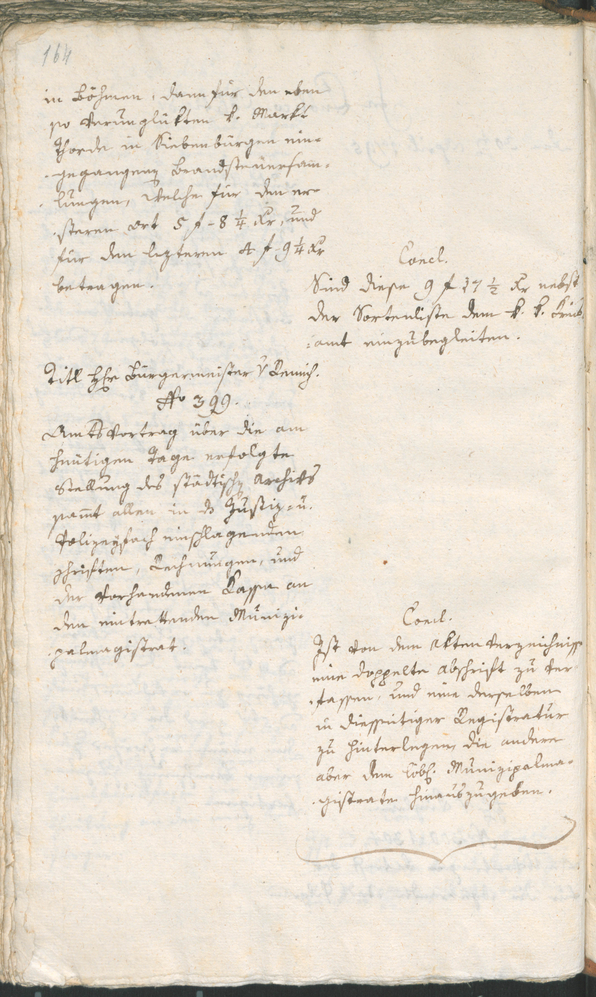 164
in Böhmen, dann für den eben
so verunglükten k. Markt
Thorda in Siebenbürgen ein-
gegangenen Brandsteuersam-
lungen, welche für den er-
steren Ort 5 f - 8 1/4 Xr, und
für den lezteren 4 f - 9 1/4 Xr
betragen.
Concl.
Sind diese 9 f 17 1/2 Xr nebst
der Sortenliste dem k. k. Kreis-
amt einzubegleiten.
Titl Hr Bürgermeister v
No 399.
Amtsvortrag über die am
heütigen Tage erfolgte
Stellung des städtischen Archivs
samt allen in das Justiz- u.
Polizeyfach einschlagenden
Schriften, Rechnungen, und
der vorhandenen Kassa an
den eintrettenden Munizi-
palmagistrat.
Concl.
Ist von dem Akten Verzeichniss
eine doppelte Abschrift zu ver-
fassen, und eine derselben
in diesseitiger Registratur
zu hinterlegen, die andere
aber dem löbl. Munizipalma-
gistrate hinauszugeben.